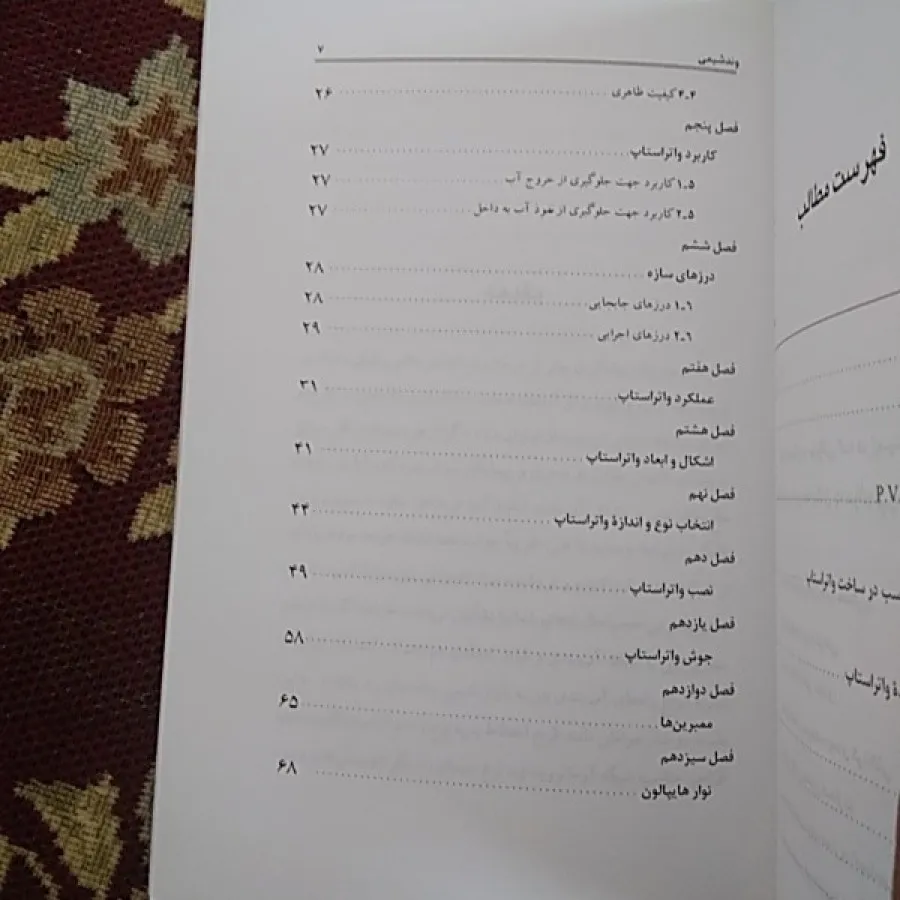 فهرست مطالب
P.V.
سب در ساخت واتراستاپ
ۀ واتراستاپ
وندشیمی ۷
۴ـ۴ کیفیت ظاهری ۲۶
فصل پنجم
کاربرد واتراستاپ ۲۷
۱ـ۵ کاربرد جهت جلوگیری از خروج آب ۲۷
۲ـ۵ کاربرد جهت جلوگیری از نفوذ آب به داخل ۲۷
فصل ششم
درزهای سازه ۲۸
۱ـ۶ درزهای جابجایی ۲۸
۲ـ۶ درزهای اجرایی ۲۹
فصل هفتم
عملکرد واتراستاپ ۳۱
فصل هشتم
اشکال و ابعاد واتراستاپ ۴۱
فصل نهم
انتخاب نوع و اندازۀ واتراستاپ ۴۴
فصل دهم
نصب واتراستاپ ۴۹
فصل یازدهم
جوش واتراستاپ ۵۸
فصل دوازدهم
ممبرین‌ها ۶۵
فصل سیزدهم
نوار هایپالون ۶۸